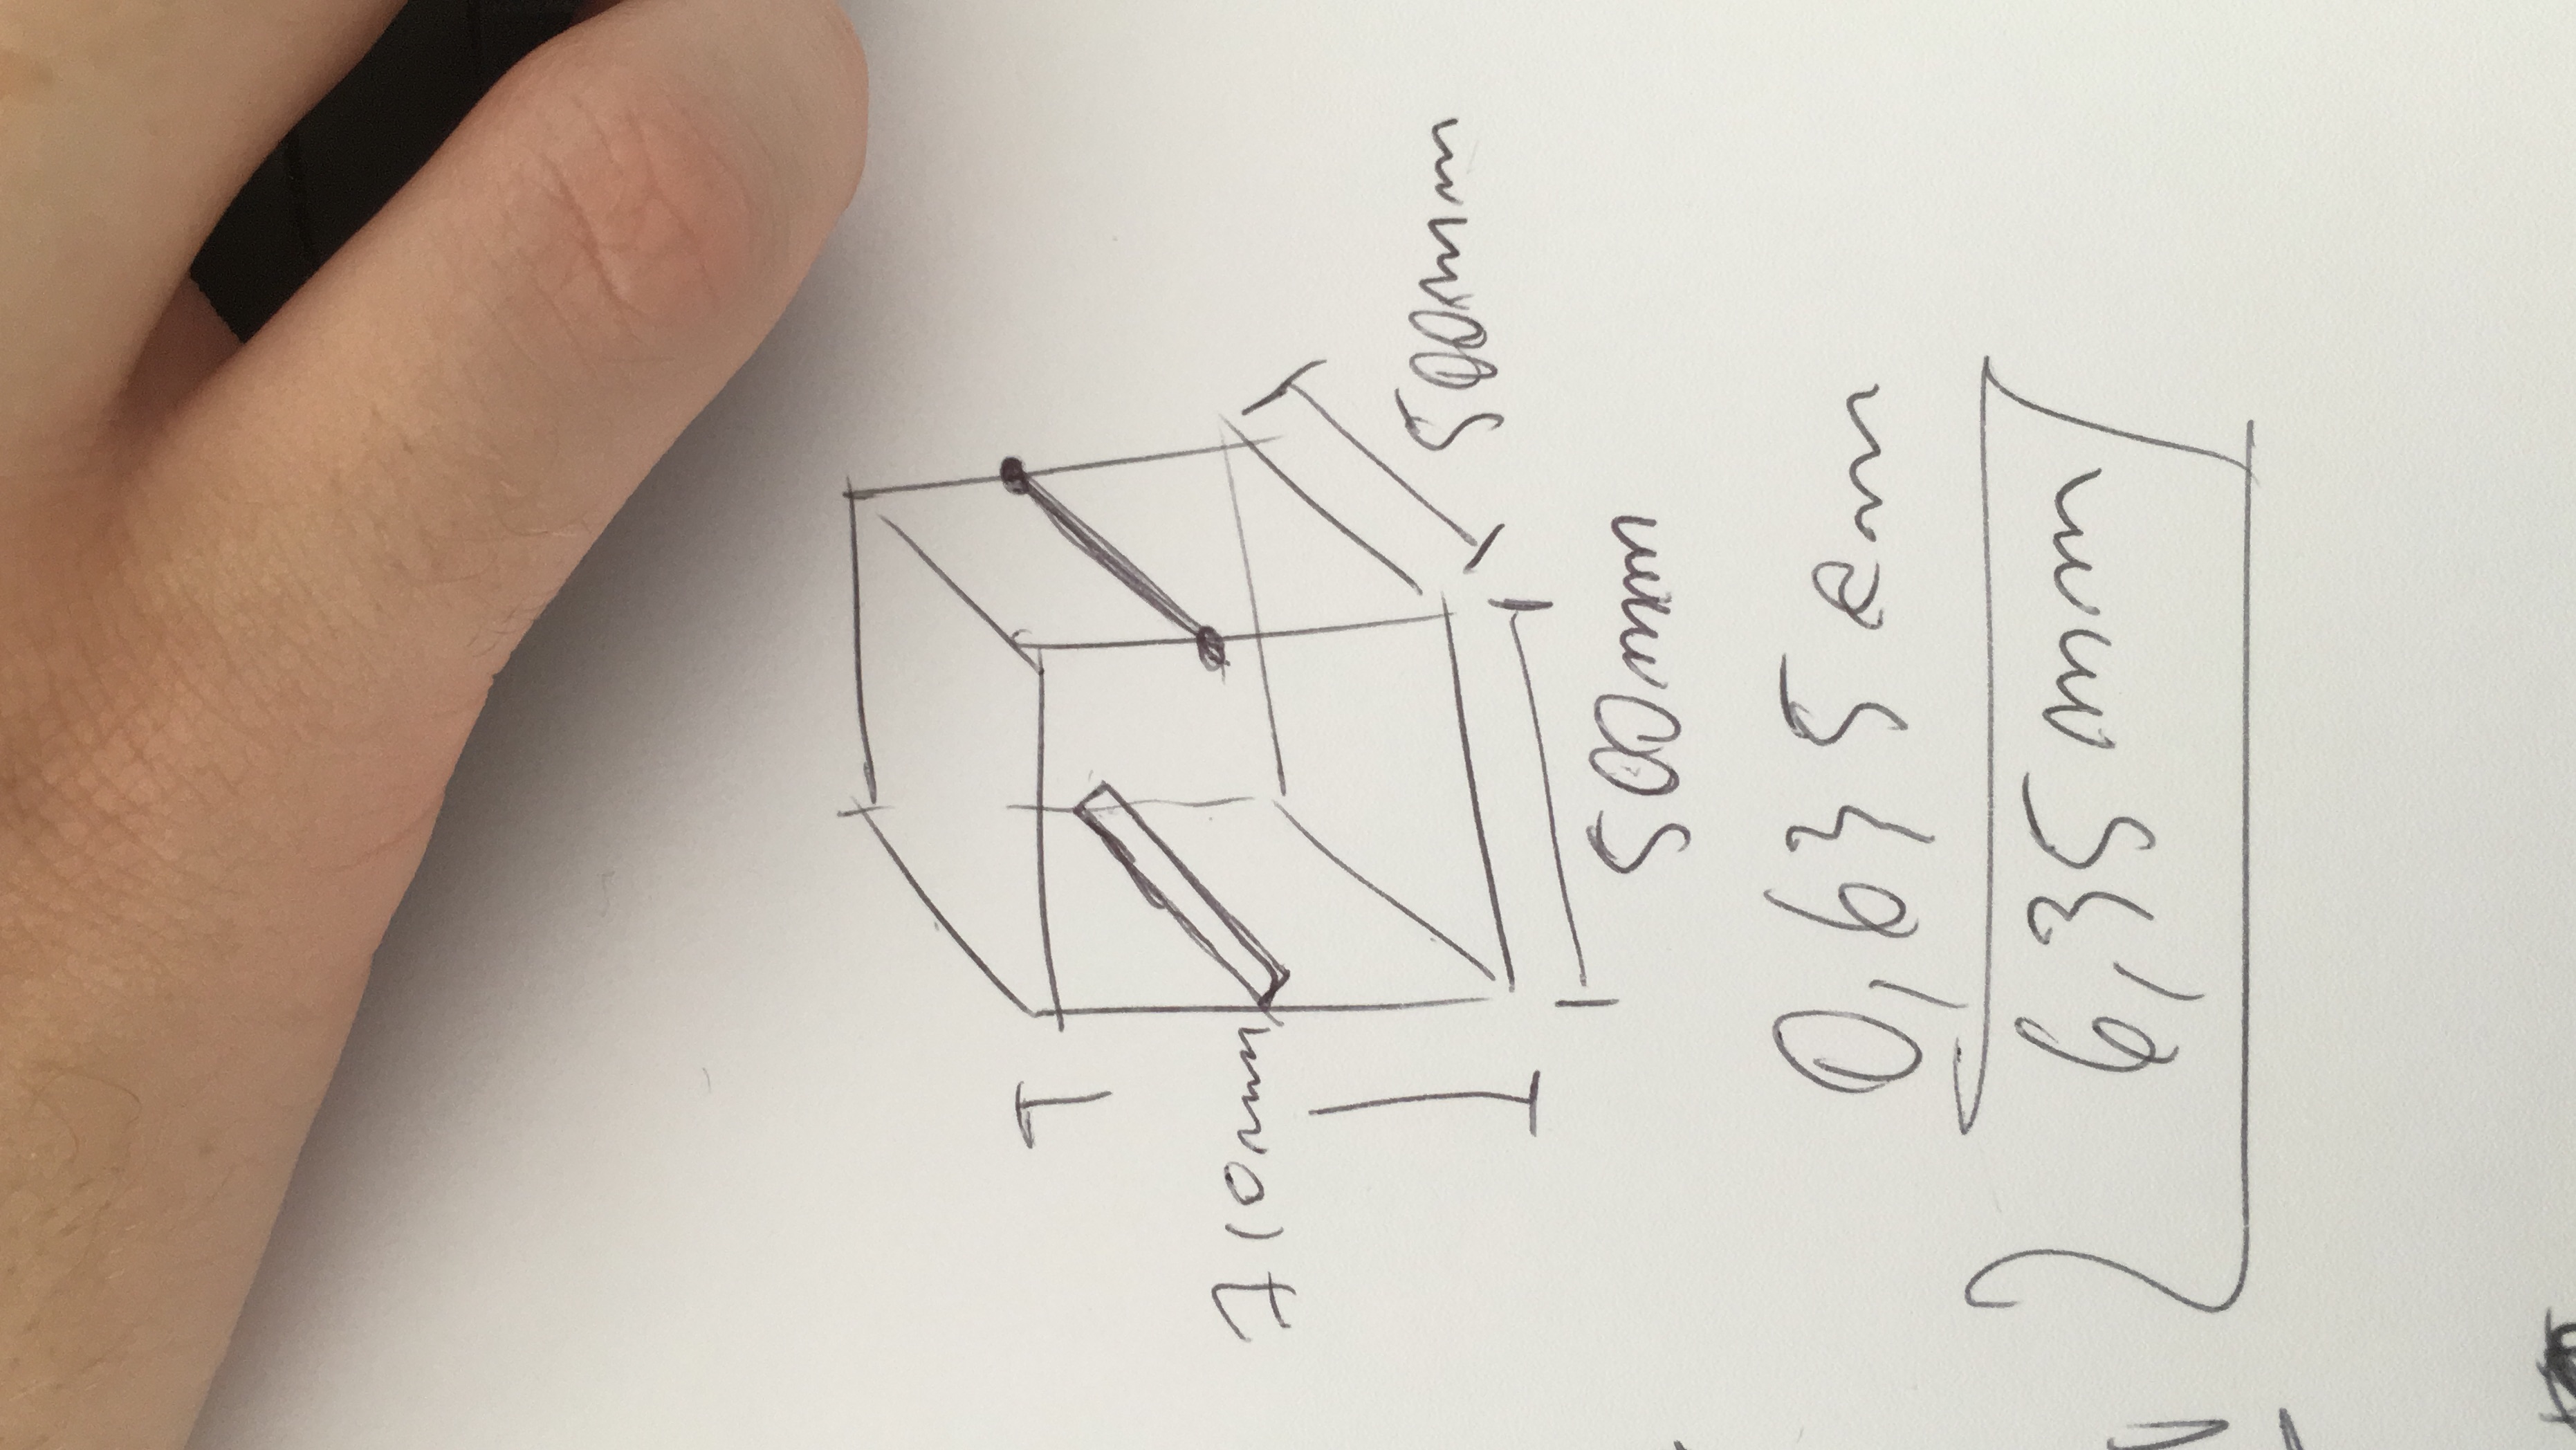 710mm
500mm
500mm
0,635cm
6,35mm